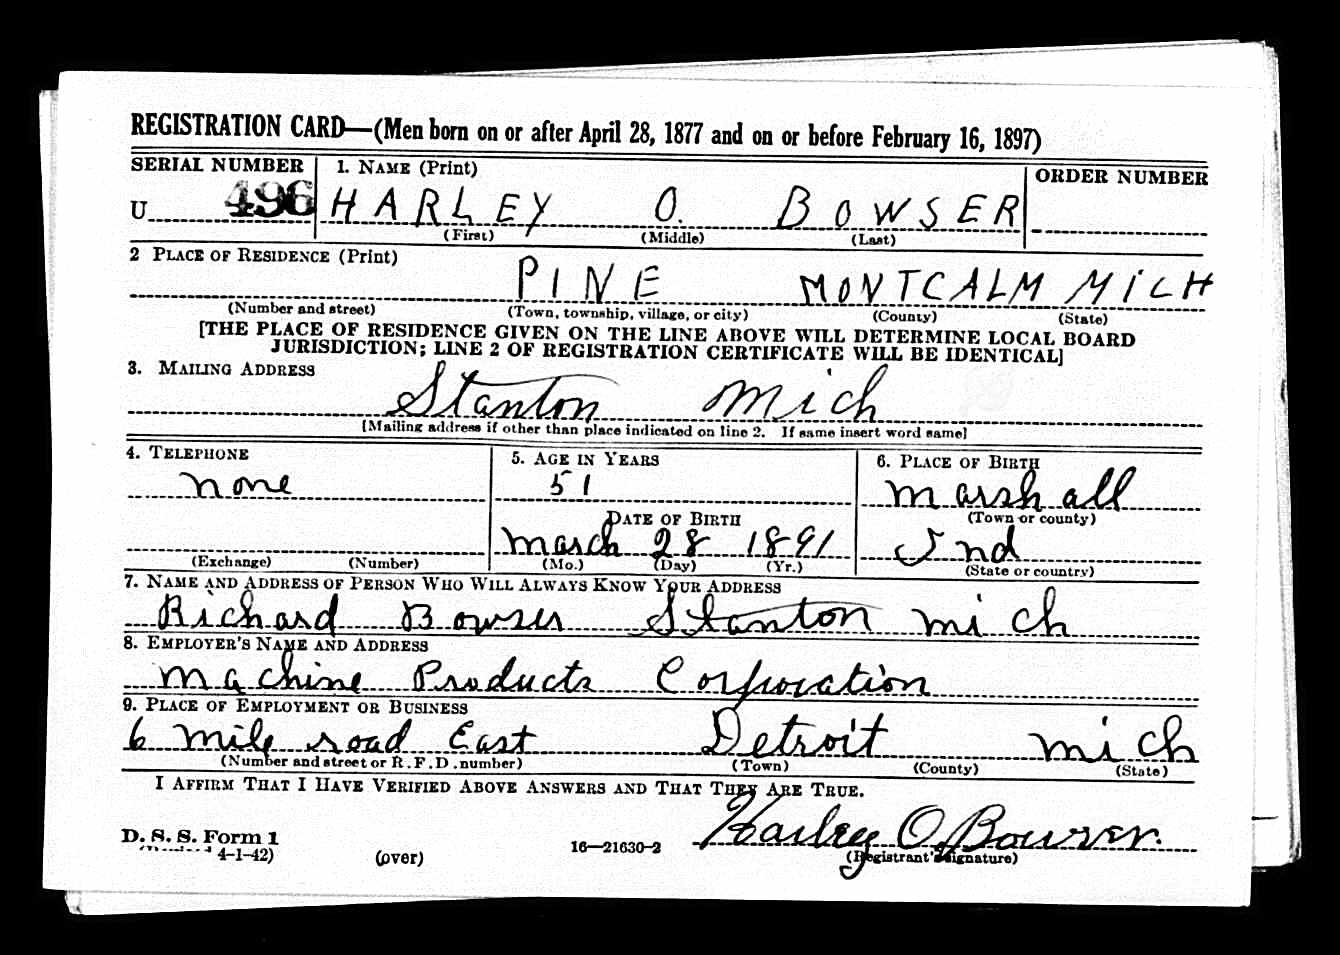 REGISTRATION CARD—(Men born on or after April 28, 1877 and on or before February 16, 1897)
SERIAL NUMBER 1. NAME (Print) ORDER NUMBER
U 496 HARLEY O. BOWSER
(First) (Middle) (Last)
2 PLACE OF RESIDENCE (Print)
PINE MONTCALM MICH
(Number and street) (Town, township, village, or city) (County) (State)
[THE PLACE OF RESIDENCE GIVEN ON THE LINE ABOVE WILL DETERMINE LOCAL BOARD
JURISDICTION; LINE 2 OF REGISTRATION CERTIFICATE WILL BE IDENTICAL]
3. MAILING ADDRESS
Stanton Mich
[Mailing address if other than place indicated on line 2. If same insert word same]
4. TELEPHONE 5. AGE IN YEARS 6. PLACE OF BIRTH
none 51 Marshall
DATE OF BIRTH (Town or county)
March 28 1891 Ind
(Exchange) (Number) (Mo.) (Day) (Yr.) (State or country)
7. NAME AND ADDRESS OF PERSON WHO WILL ALWAYS KNOW YOUR ADDRESS
Richard Bowser Stanton Mich
8. EMPLOYER'S NAME AND ADDRESS
Machine Products Corporation
9. PLACE OF EMPLOYMENT OR BUSINESS
6 Mile road East Detroit Mich
(Number and street or R. F. D. number) (Town) (County) (State)
I AFFIRM THAT I HAVE VERIFIED ABOVE ANSWERS AND THAT THEY ARE TRUE.
Harley O. Bowser.
D. S. S. Form 1
4-1-42) (over) 16—21630-2 (Registrant's signature)